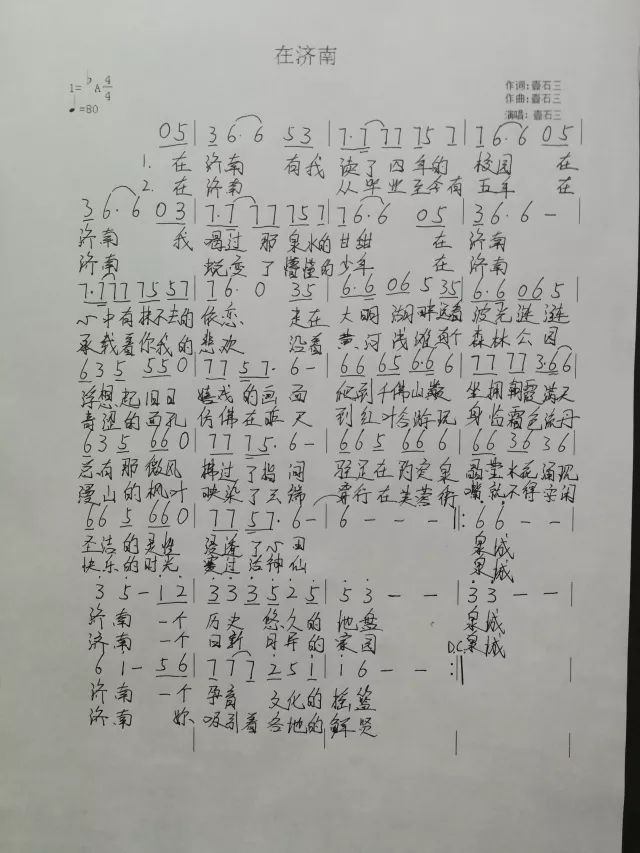 在济南
1=♭A 4/4
♩=80
作词:壹石三
作曲:壹石三
演唱:壹石三
0 5 | 3 6· 6 5 3 | 7· 7 7 7 7 5 7 | 7 6· 6 0 5 |
1. 在 济南 有我 读了四年的 校园 在
2. 在 济南 从毕业至今有 五年 在
3 6· 6 0 3 | 7· 7 7 7 7 5 7 | 7 6· 6 0 5 | 3 6· 6 - |
济南 我 喝过 那 泉水的 甘甜 在 济南
济南 蜕变 了 懵懂的 少年 在 济南
7· 7 7 7 7 5 5 7 | 7 6· 0 3 5 | 6· 6 0 6 5 3 5 | 6· 6 0 6 5 |
心中有抹不去的 依恋 走在 大明 湖畔 波光 涟涟
承载着你我的 悲欢 沿着 黄河 浅滩 森林 公园
6 3 5 5 5 0 | 7 7 5 7· 6 - | 6 6 6 5 6· 6 6 | 7 7 7 7 3· 6 6 |
浮想 起 旧日 嬉戏 的 画 面 爬到 千佛山 坐拥 朝霞 满天
奇迹 的 面孔 仿佛 在 昨 天 到 红叶谷 游玩
6 3 5 6 6 0 | 7 7 7 5· 6 - | 6 6 5 6 6 6 | 6 6 3 6 3 6 |
总有 那 微风 拂过 了 指 间 驻足 在 趵突 泉 水花 涌现
漫山 的 枫叶 映染 了 云 端 穿行 在 芙蓉 街 嘴 就 不得 空闲
6 6 5 6 6 0 | 7 7 5 7· 6 - | 6 - - - ‖: 6 6 - - |
圣洁 的 灵性 浸透 了 心 田 泉城
快乐 的 时光 赛过 活 神 仙 泉城
3 5 - 1 2 | 3 3 3 5 2 5 | 5 3 - - | 3 3 - - |
济南 一个 历史 悠久 的 地盘 泉城
济南 一个 日新 月异 的 家园 D.C. 泉城
6 1 - 5 6 | 7 7 7 2 5 1 | 1 6 - - :‖
济南 一个 孕育 文化 的 摇篮
济南 你 吸引 着 各地 的 鲜贤